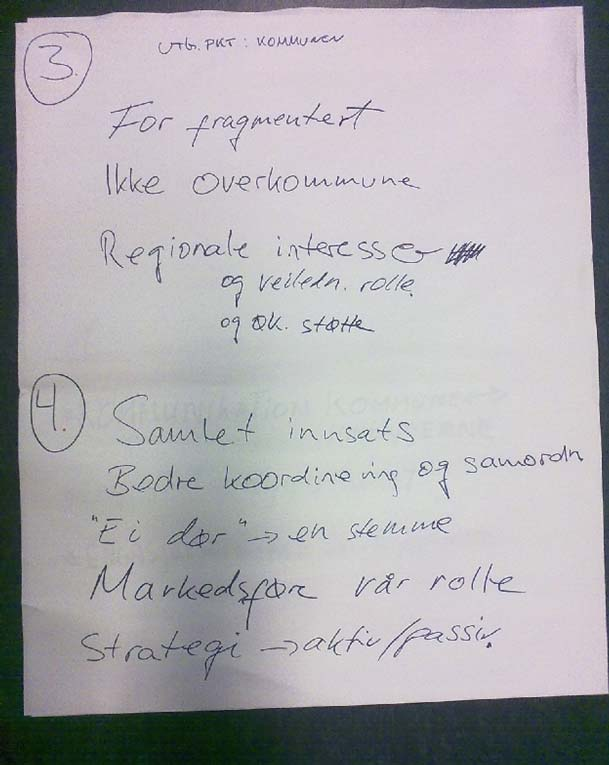 3.
UTG. PKT : KOMMUNEN
For fragmentert
Ikke overkommune
Regionale interesser
og veiledn. rolle.
og øk. støtte
4.
Samlet innsats
Bedre koordinering og samordn
"Ei dør" → en stemme
Markedsføre vår rolle
Strategi → aktiv/passiv.